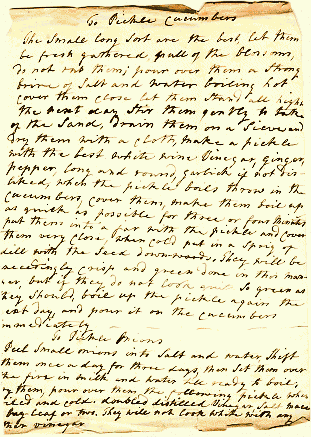 To Pickle Cucumbers
The Small long Sort are the best, let them
be fresh gathered, pull of the blossoms,
do not rub them; pour over them a strong
brine of Salt and water boiling hot
cover them close let them Stand all night
the next day Stir them gently to take
of the Sand, Drain them on a Sieve and
Dry them with a cloth, make a pickle
with the best white wine Vinegar, ginger,
pepper, long and round, garlick if not dis-
liked, when the pickle boils throw in the
Cucumbers, cover them, make them boil up
as quick as possible for three or four minutes
put them into a jar with the pickle and cover
them very close, when cold put in a Sprig of
dill with the Seed downwards; they will be
exceedingly crisp and green done in this man-
ner, but if they do not look quite So green as
they Should, boil up the pickle again the
next day, and pour it on the cucumbers
immediately
To Pickle Onions
Peel Small onions into Salt and water, Shift
them once a day for three days, then Set them over
the fire in milk and water till ready to boil,
dry them, pour over them the following pickle when
boiled and cold. doubled distilled Vinegar, Salt mace
bay leaf or two. they will not look white with any
other vinegar